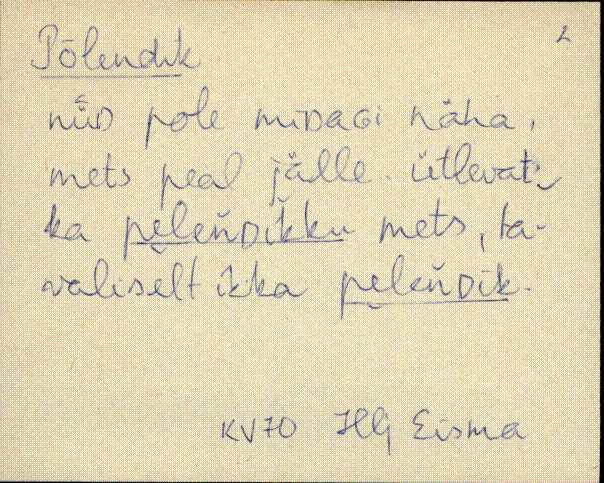 2
Põlendik
nüᴅ pole miᴅaɢi näha,
mets peal jälle. ütlevat‿
ka pe̮leńᴅikku mets, ta-
valiselt ikka pe̮leńᴅik.
KV70 Hlj Eisma